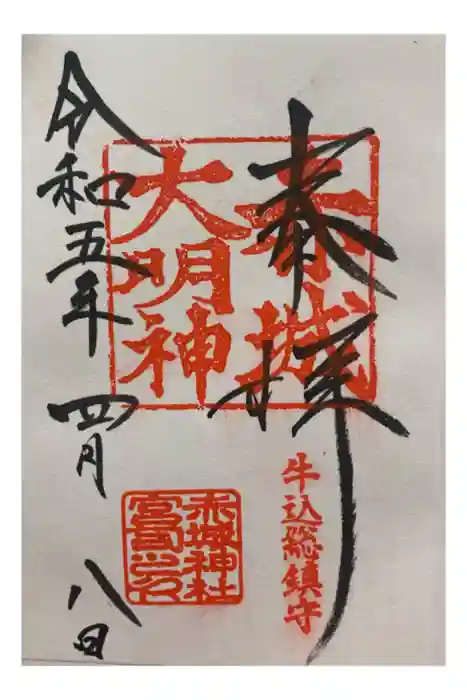 奉拝
赤城
大明神
牛込総鎮守
赤城神社
宮司之印
令和五年四月八日